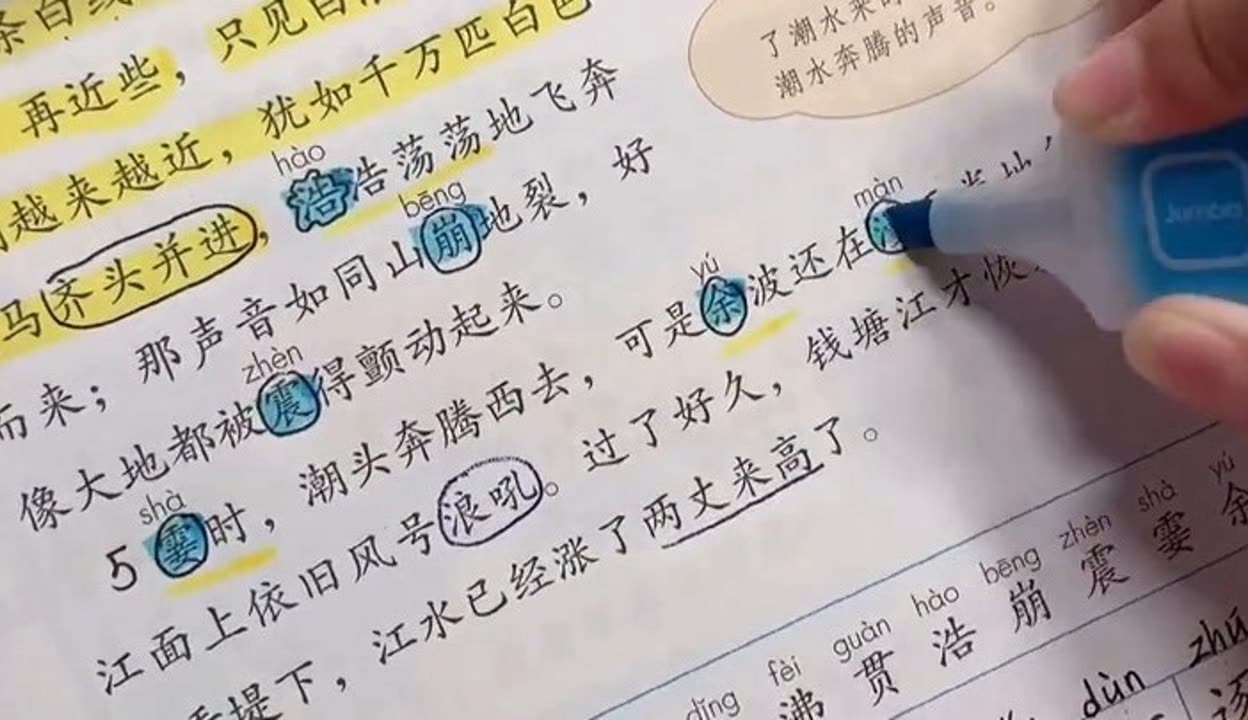 条白线
再近些，只见白
越来越近，犹如千万匹白色
hào
马齐头并进，浩浩荡荡地飞奔
bēng
而来；那声音如同山崩地裂，好
zhèn
像大地都被震得颤动起来。
shà yú màn
5 霎时，潮头奔腾西去，可是余波还在漫
江面上依旧风号浪吼。过了好久，钱塘江才恢
堤下，江水已经涨了两丈来高了。
了潮水来时
潮水奔腾的声音。
Jumbo
dǐng fèi guàn hào bēng zhèn shà yú
沸 贯 浩 崩 震 霎 余
dùn zhú
逐